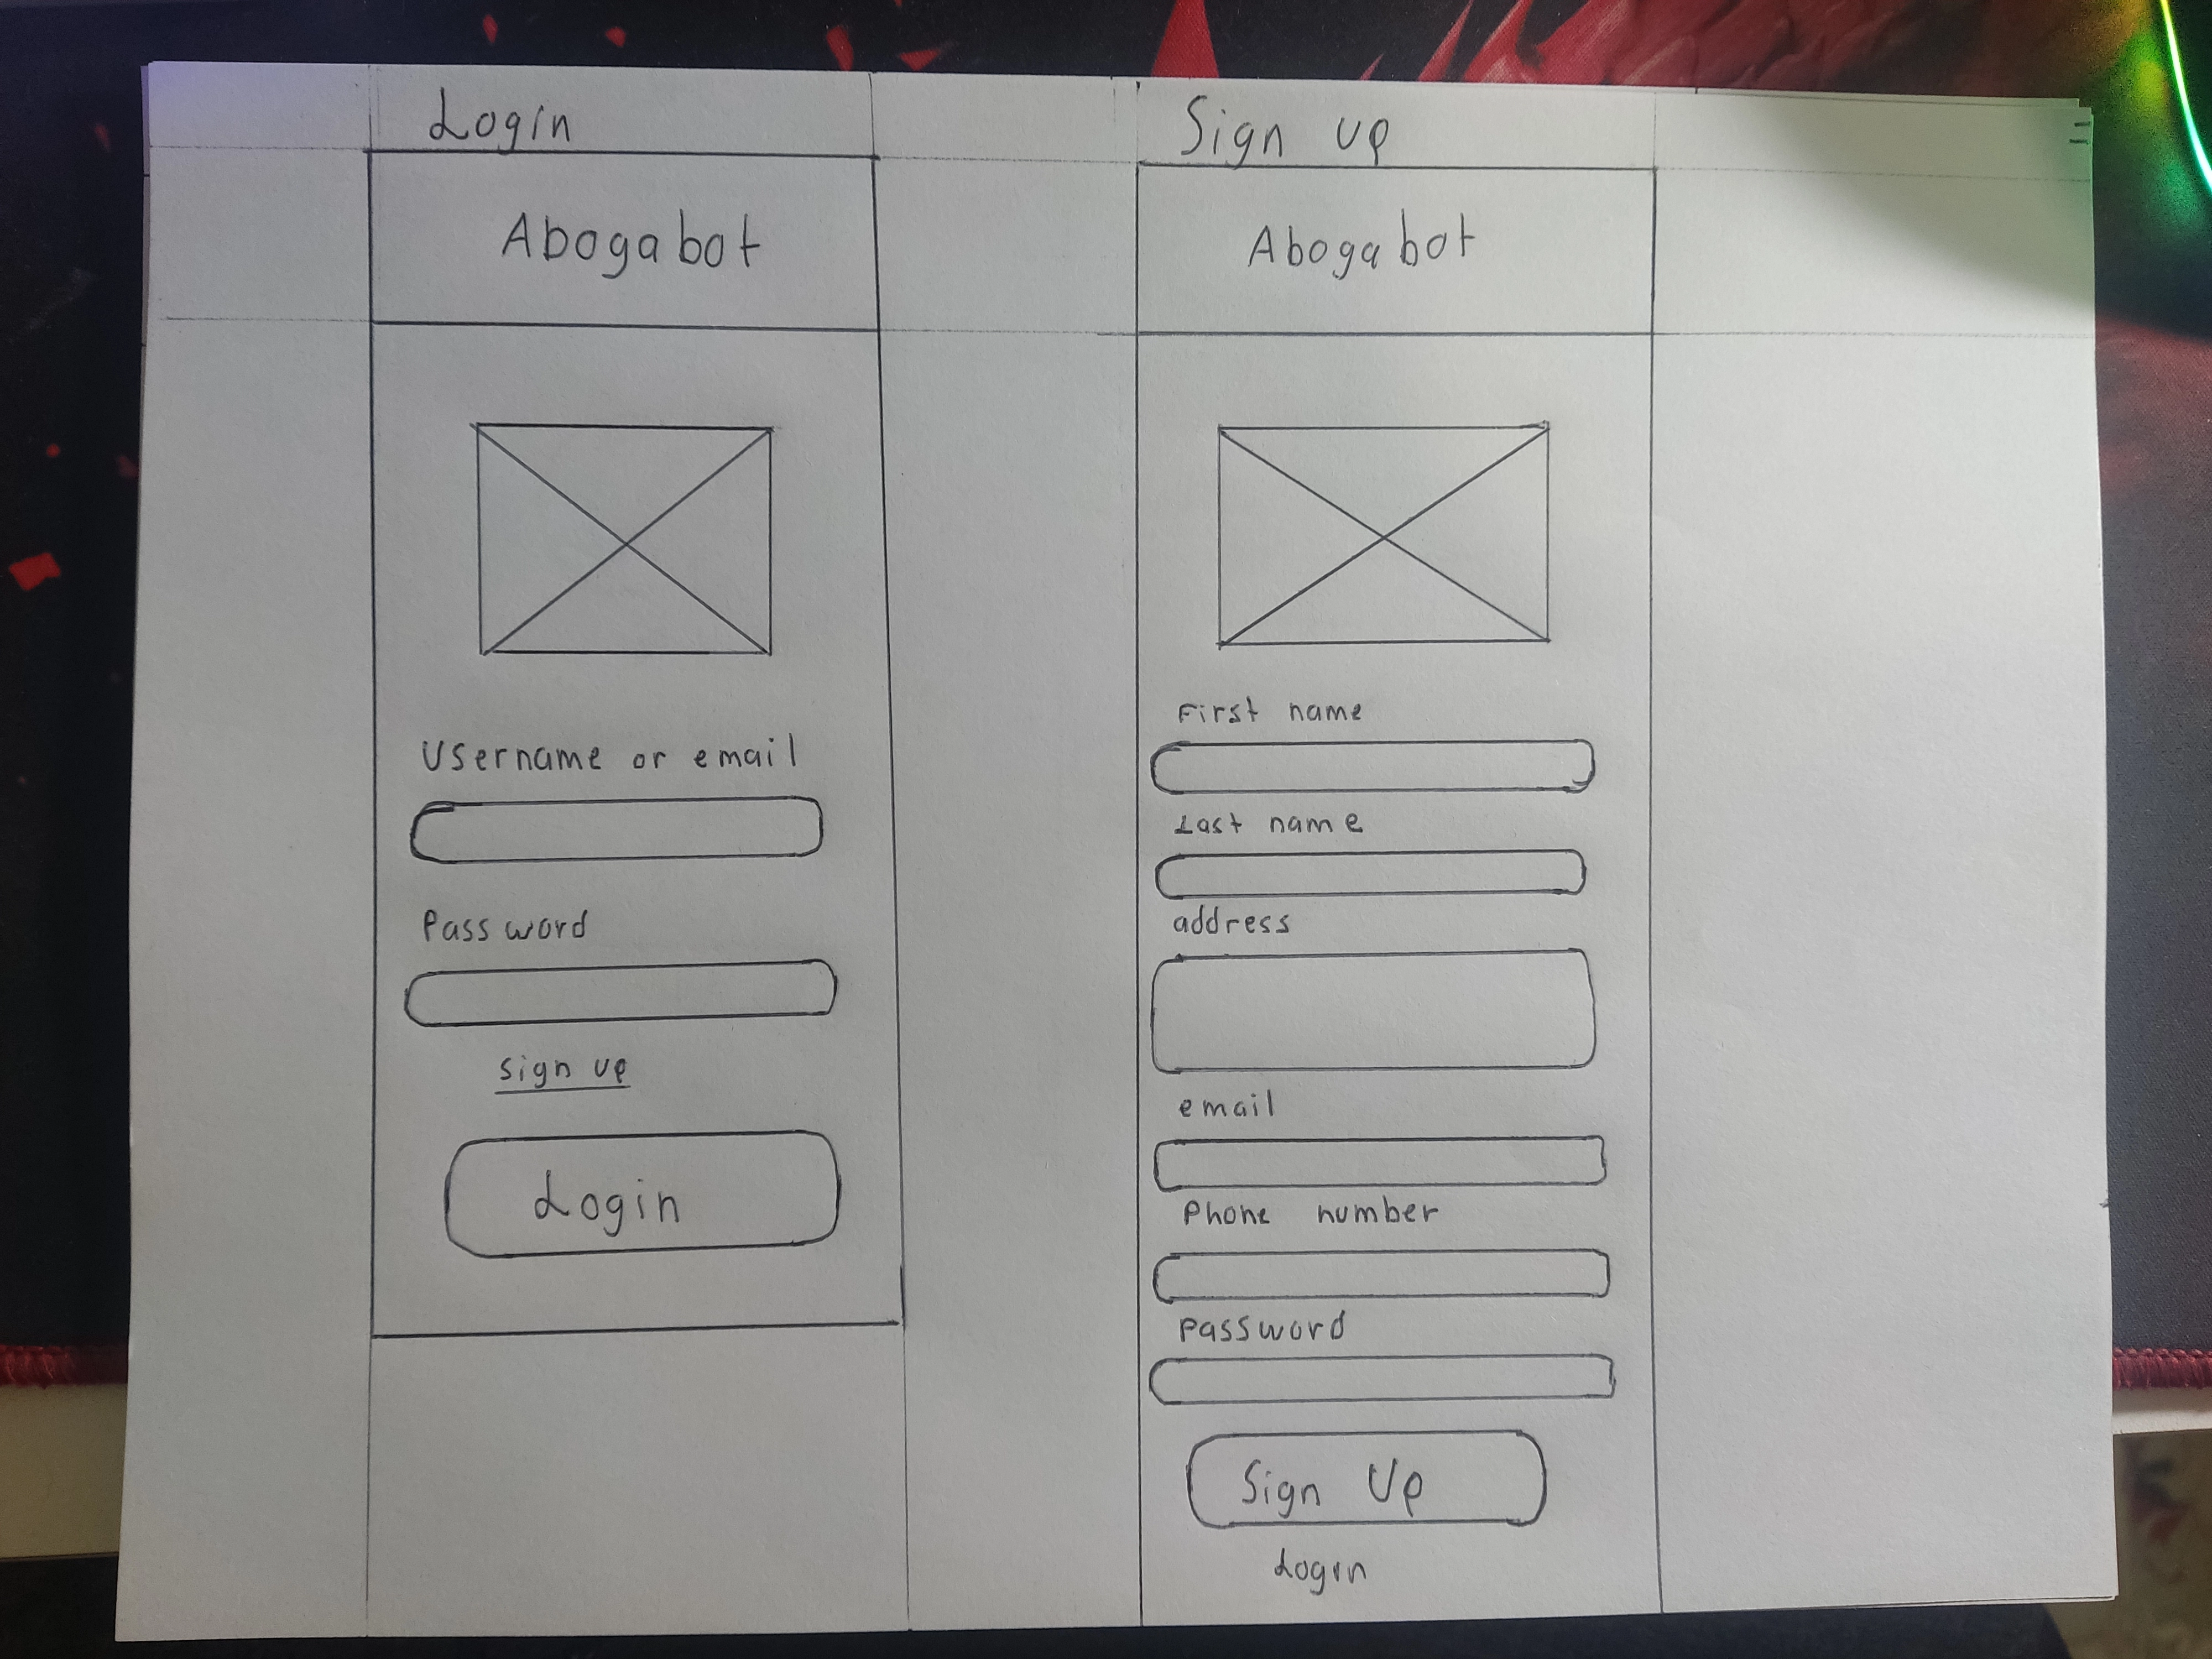 Login
Abogabot
Username or email
Password
sign up
Login
Sign up
Abogabot
First name
Last name
address
email
Phone number
password
Sign Up
Login